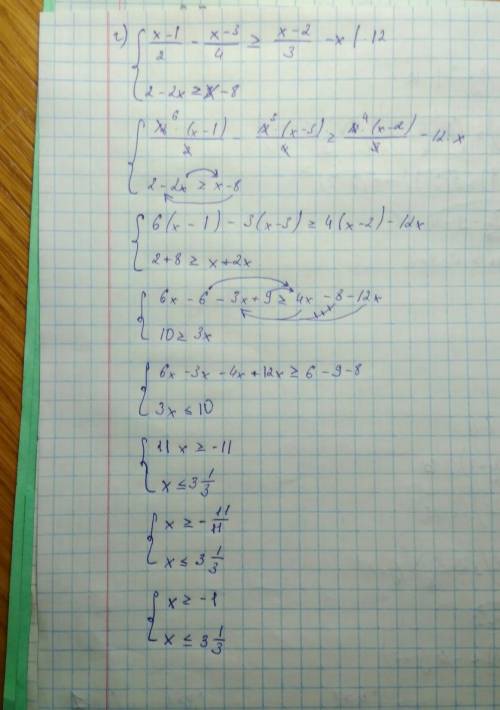 г) { (x-1)/2 - (x-3)/4 ≥ (x-2)/3 - x | · 12
2 - 2x ≥ x - 8
{ 12⁶ · (x-1)/2 - 12³ · (x-3)/4 ≥ 12⁴ (x-2)/3 - 12 · x
2 - 2x ≥ x - 8
{ 6(x - 1) - 3(x-3) ≥ 4(x-2) - 12x
2+8 ≥ x+2x
{ 6x - 6 - 3x + 9 ≥ 4x - 8 - 12x
10 ≥ 3x
{ 6x - 3x - 4x + 12x ≥ 6 - 9 - 8
3x ≤ 10
{ 11x ≥ -11
x ≤ 3 1/3
{ x ≥ - 11/11
x ≤ 3 1/3
{ x ≥ -1
x ≤ 3 1/3